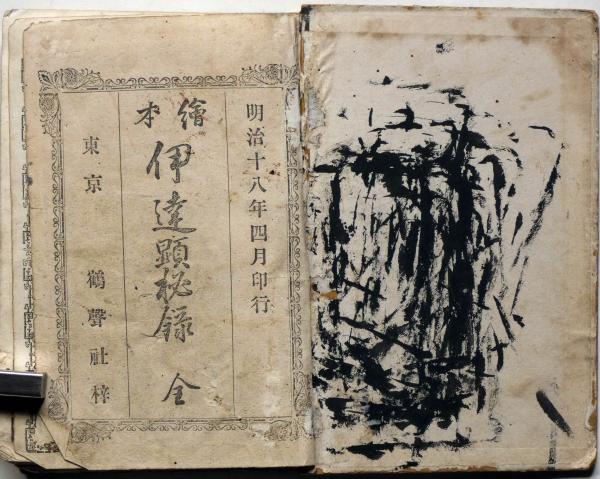 明治十八年四月印行
繪本
伊達顕秘録 全
東京 鶴聲社梓